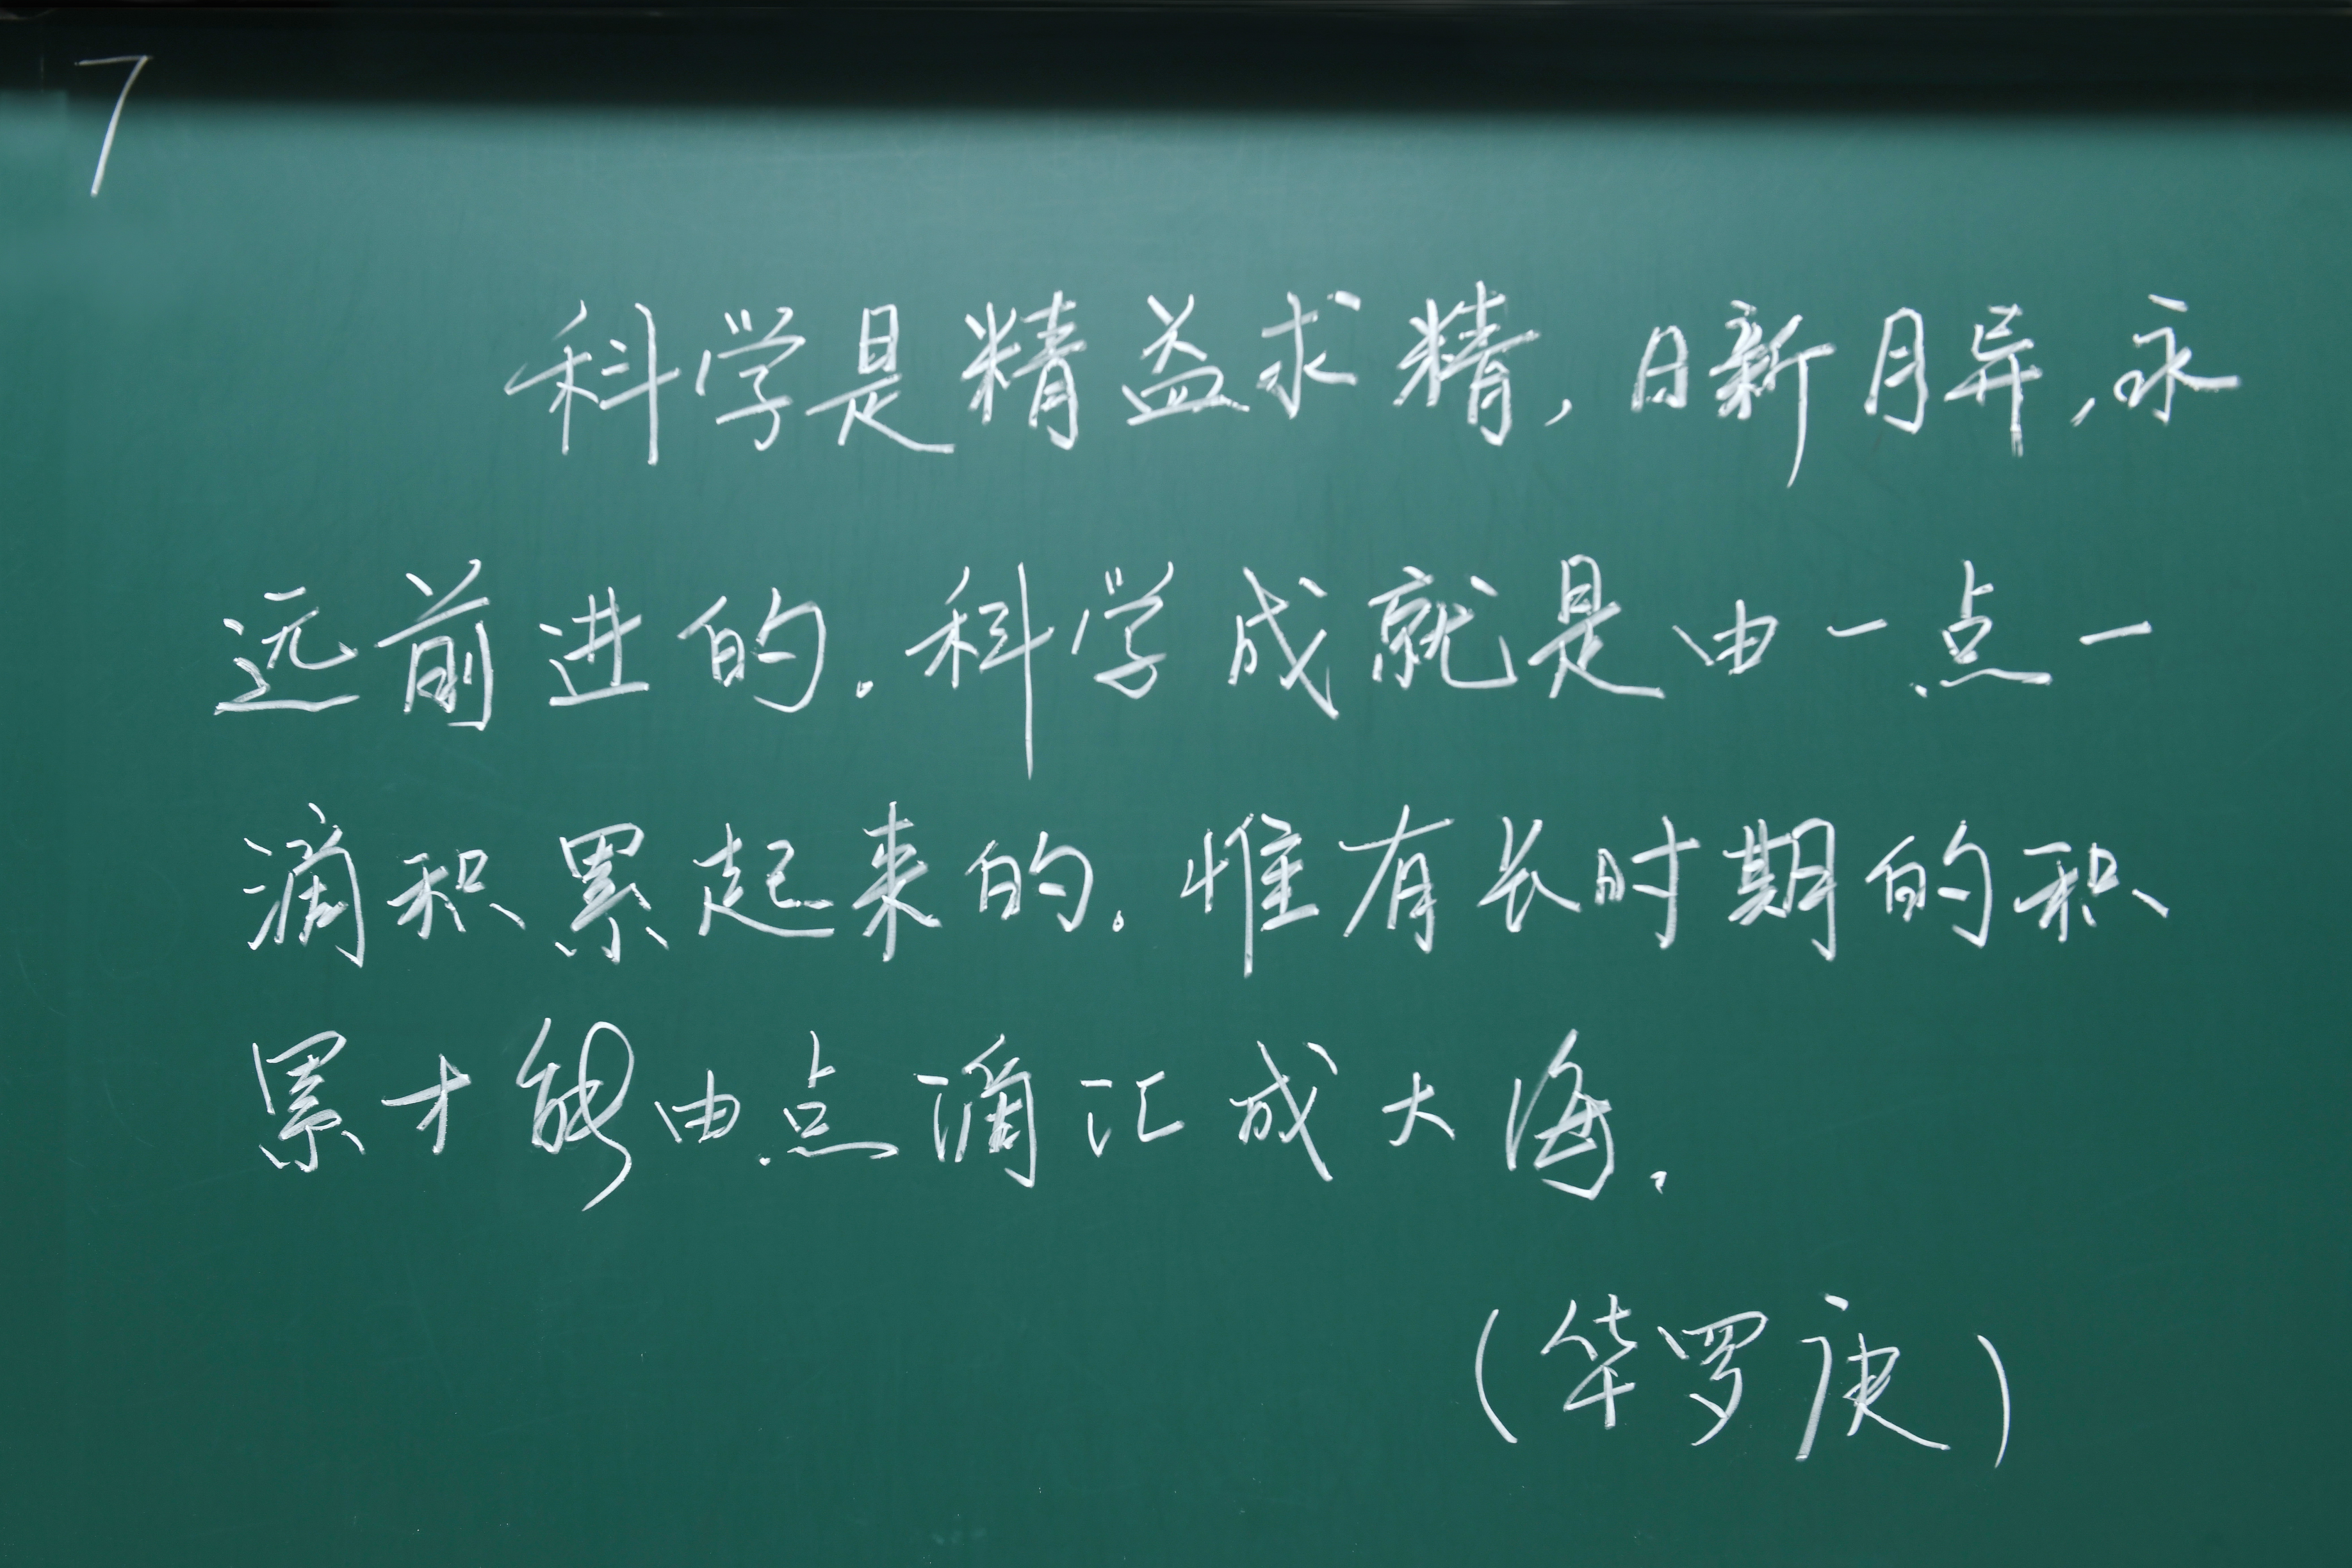 7
科学是精益求精,日新月异,永
远前进的.科学成就是由一点一
滴积累起来的.惟有长时期的积
累才能由点滴汇成大海.
(华罗庚)